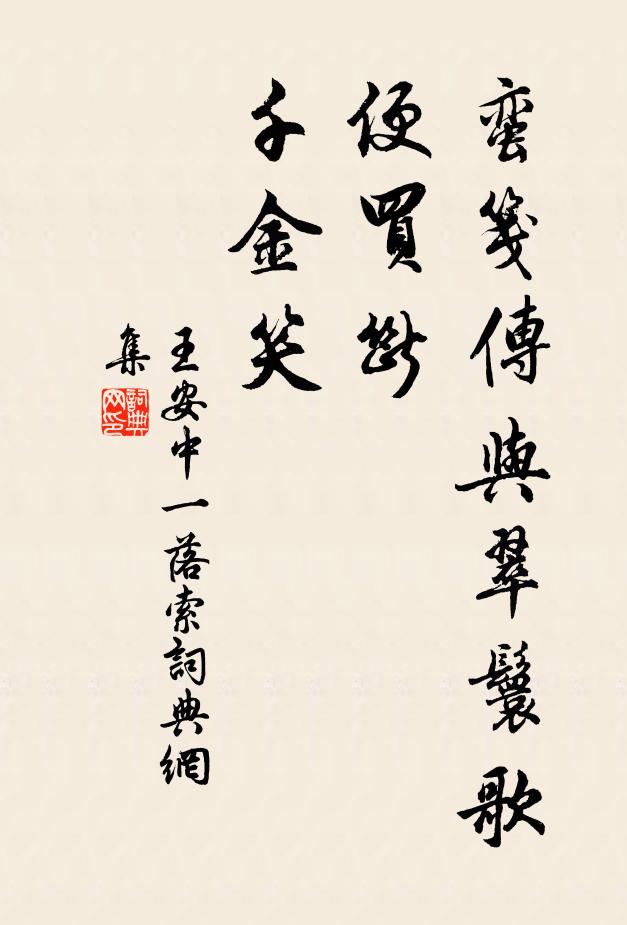 蛮箋傳與翠鬟歌
便買斷
千金笑
王安中一落索詞典網
集
詞典
网印